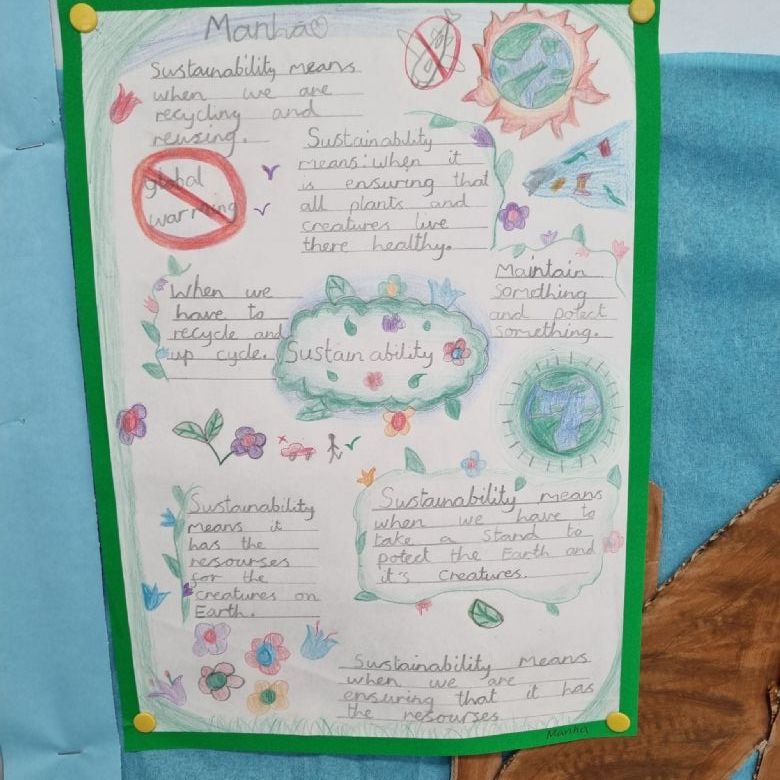 Manha
Sustainability means
when we are
recycling and
reusing.
global
warming
Sustainability
means: when it
is ensuring that
all plants and
creatures live
there healthy.
Maintain
something
and potect
something.
When we
have to
recycle and
up cycle.
Sustainability
Sustainability
means it
has the
resourses
for the
creatures on
Earth.
Sustainability means
when we have to
take a stand to
potect the Earth and
it's creatures.
Sustainability means
when we are
ensuring that it has
the resourses